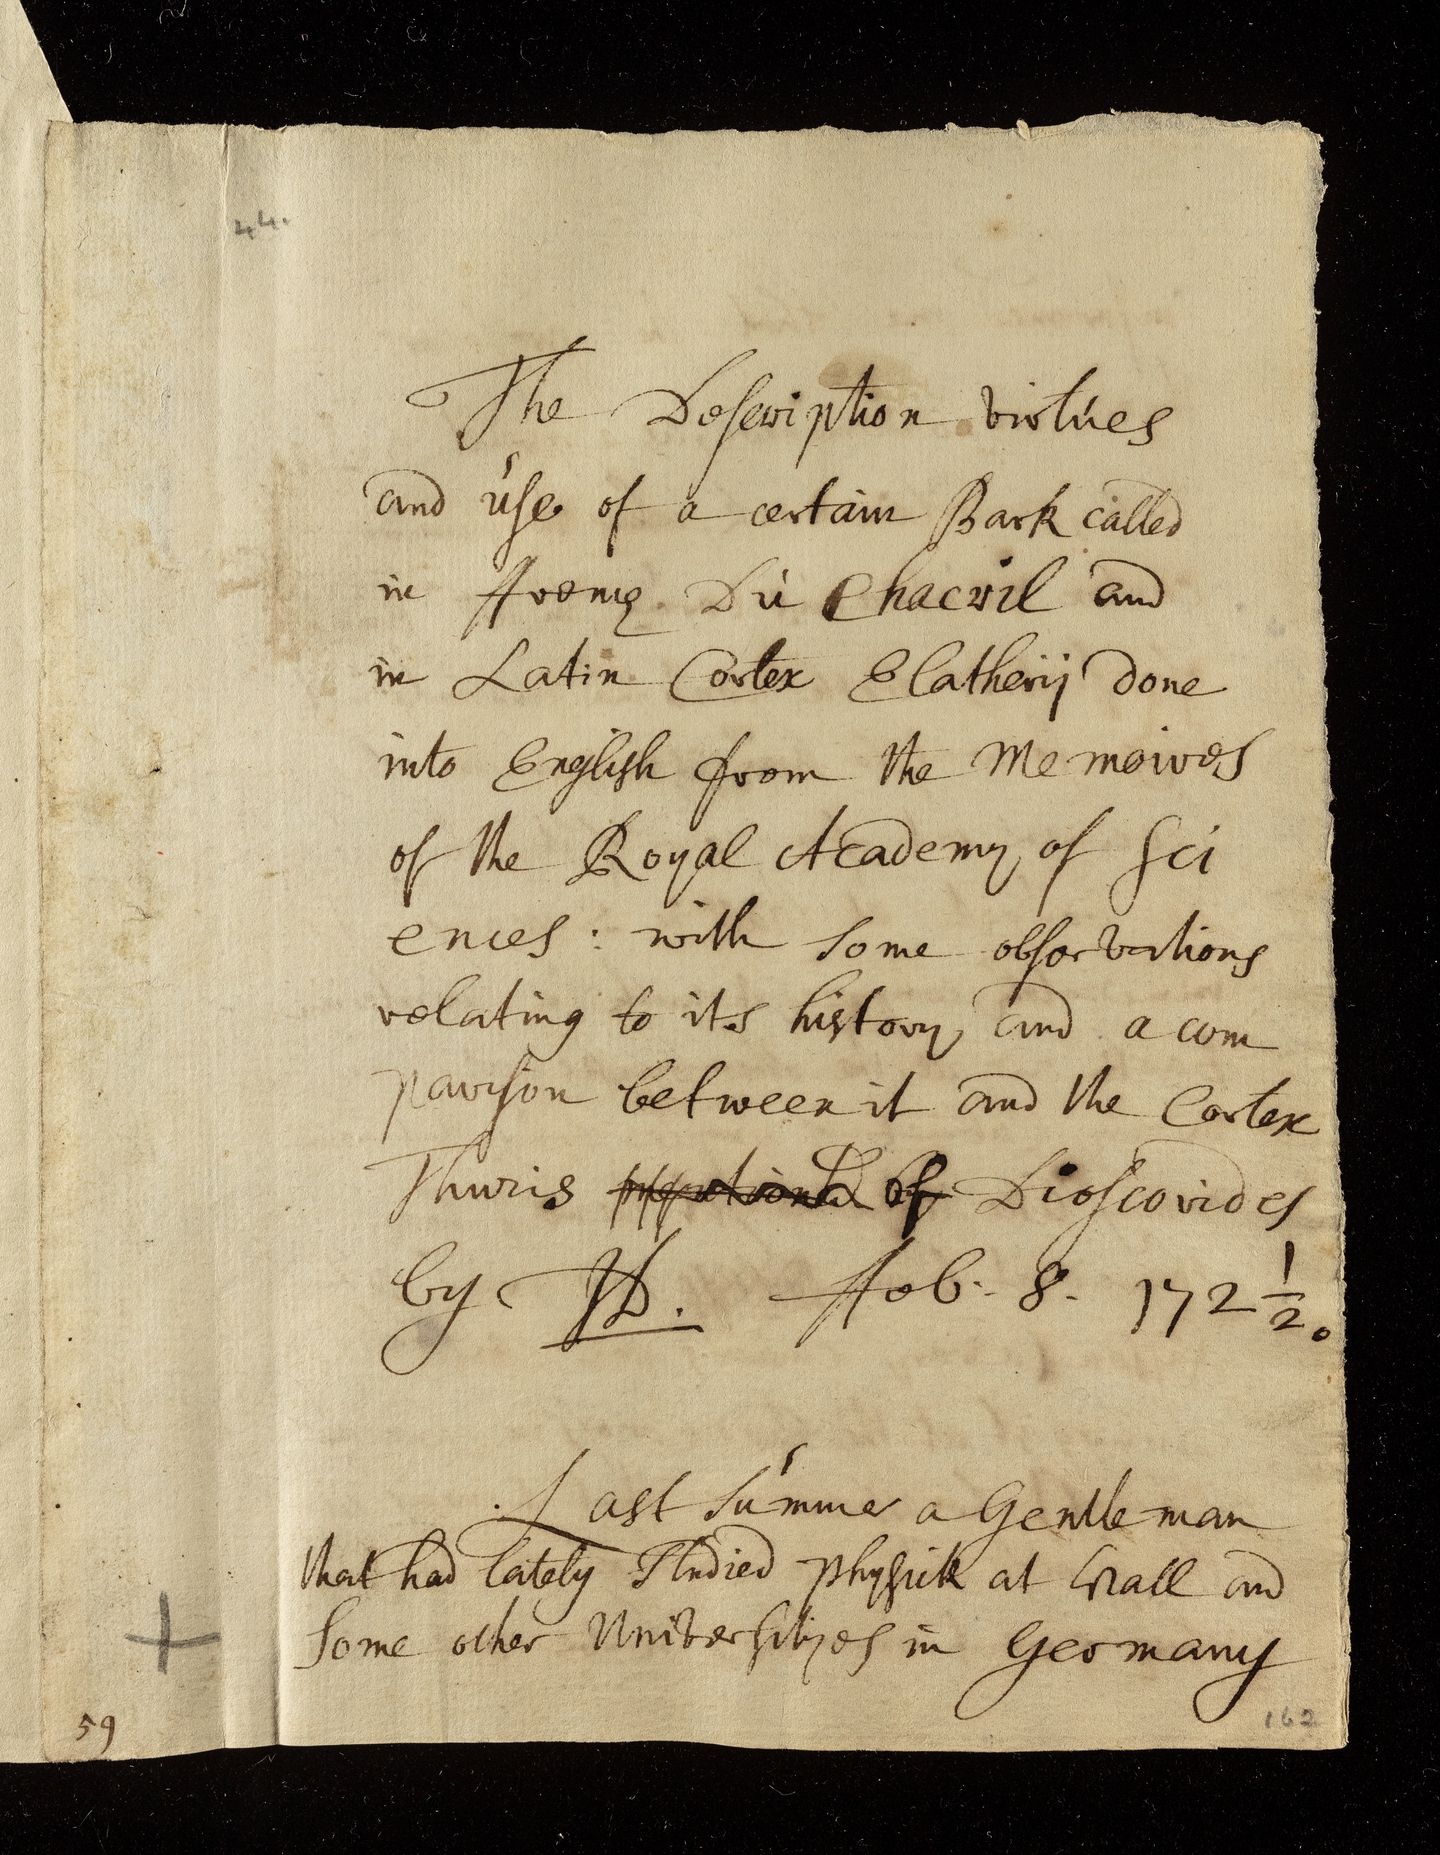 44.
The Description virtues
and use of a certain Bark called
in Frenc Du Chacril and
in Latin Cortex Elatherij done
into English from the Memoires
of the Royal Academy of Sci
ences: with some observations
relating to its history and a com
parison between it and the Cortex
Thuris of Dioscorides
by JD. Feb. 8. 172 1/2.
Last Summer a Gentleman
that had lately Studied physick at Hall and
Some other Universityes in Germany
59
162